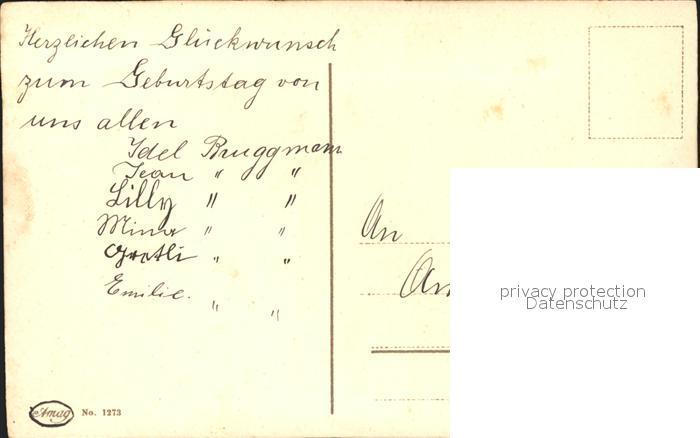 Herzlichen Glückwunsch
zum Geburtstag von
uns allen
Idel Bruggmann
Jean " "
Lilly " "
Mina " "
Gretli " "
Emilie. " "
An
privacy protection
Datenschutz
Amag No. 1273